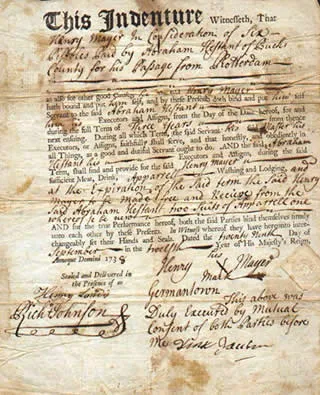 This Indenture Witnesseth, That
Henry Mayer in Consideration of Six
Pistoles Paid by Abraham Hestant of Bucks
County for his Passage from Rotterdam
as also for other good Causes, he the said Henry Mayer
hath bound and put himself, and by these Presents doth bind and put
Servant to the said Abraham Hestant
Executors and Assigns, from the Day of the Date hereof, for and
during the full Term of Three Years
next ensuing. During all which Term, the said Servant the said
Executors, or Assigns, faithfully shall serve, and that honestly, and obediently in
all Things, as a good and dutiful Servant ought to do. AND the said Abraham
Hestant his Executors and Assigns, during the said
Term, shall find and provide for the said Henry Mayer
sufficient Meat, Drink, Apparel, Washing and Lodging, and
at the Expiration of the Said term the said Henry
Mayer to be made free and Receive from the
Said Abraham Hestant two Suits of Apparrell one
whereof to be new
AND for the true Performance hereof, both the said Parties bind themselves firmly
unto each other by these Presents. In Witness whereof they have hereunto inter-
changeably set their Hands and Seals. Dated the Day of
September in the twelfth Year of His Majesty's Reign,
Annoque Domini 1738
his
Henry Mayer
Mark
Sealed and Delivered in
the Presence of us
Rich Johnson
Germantown
This above was
Duly Executed by Mutual
Consent of both the Parties before
me